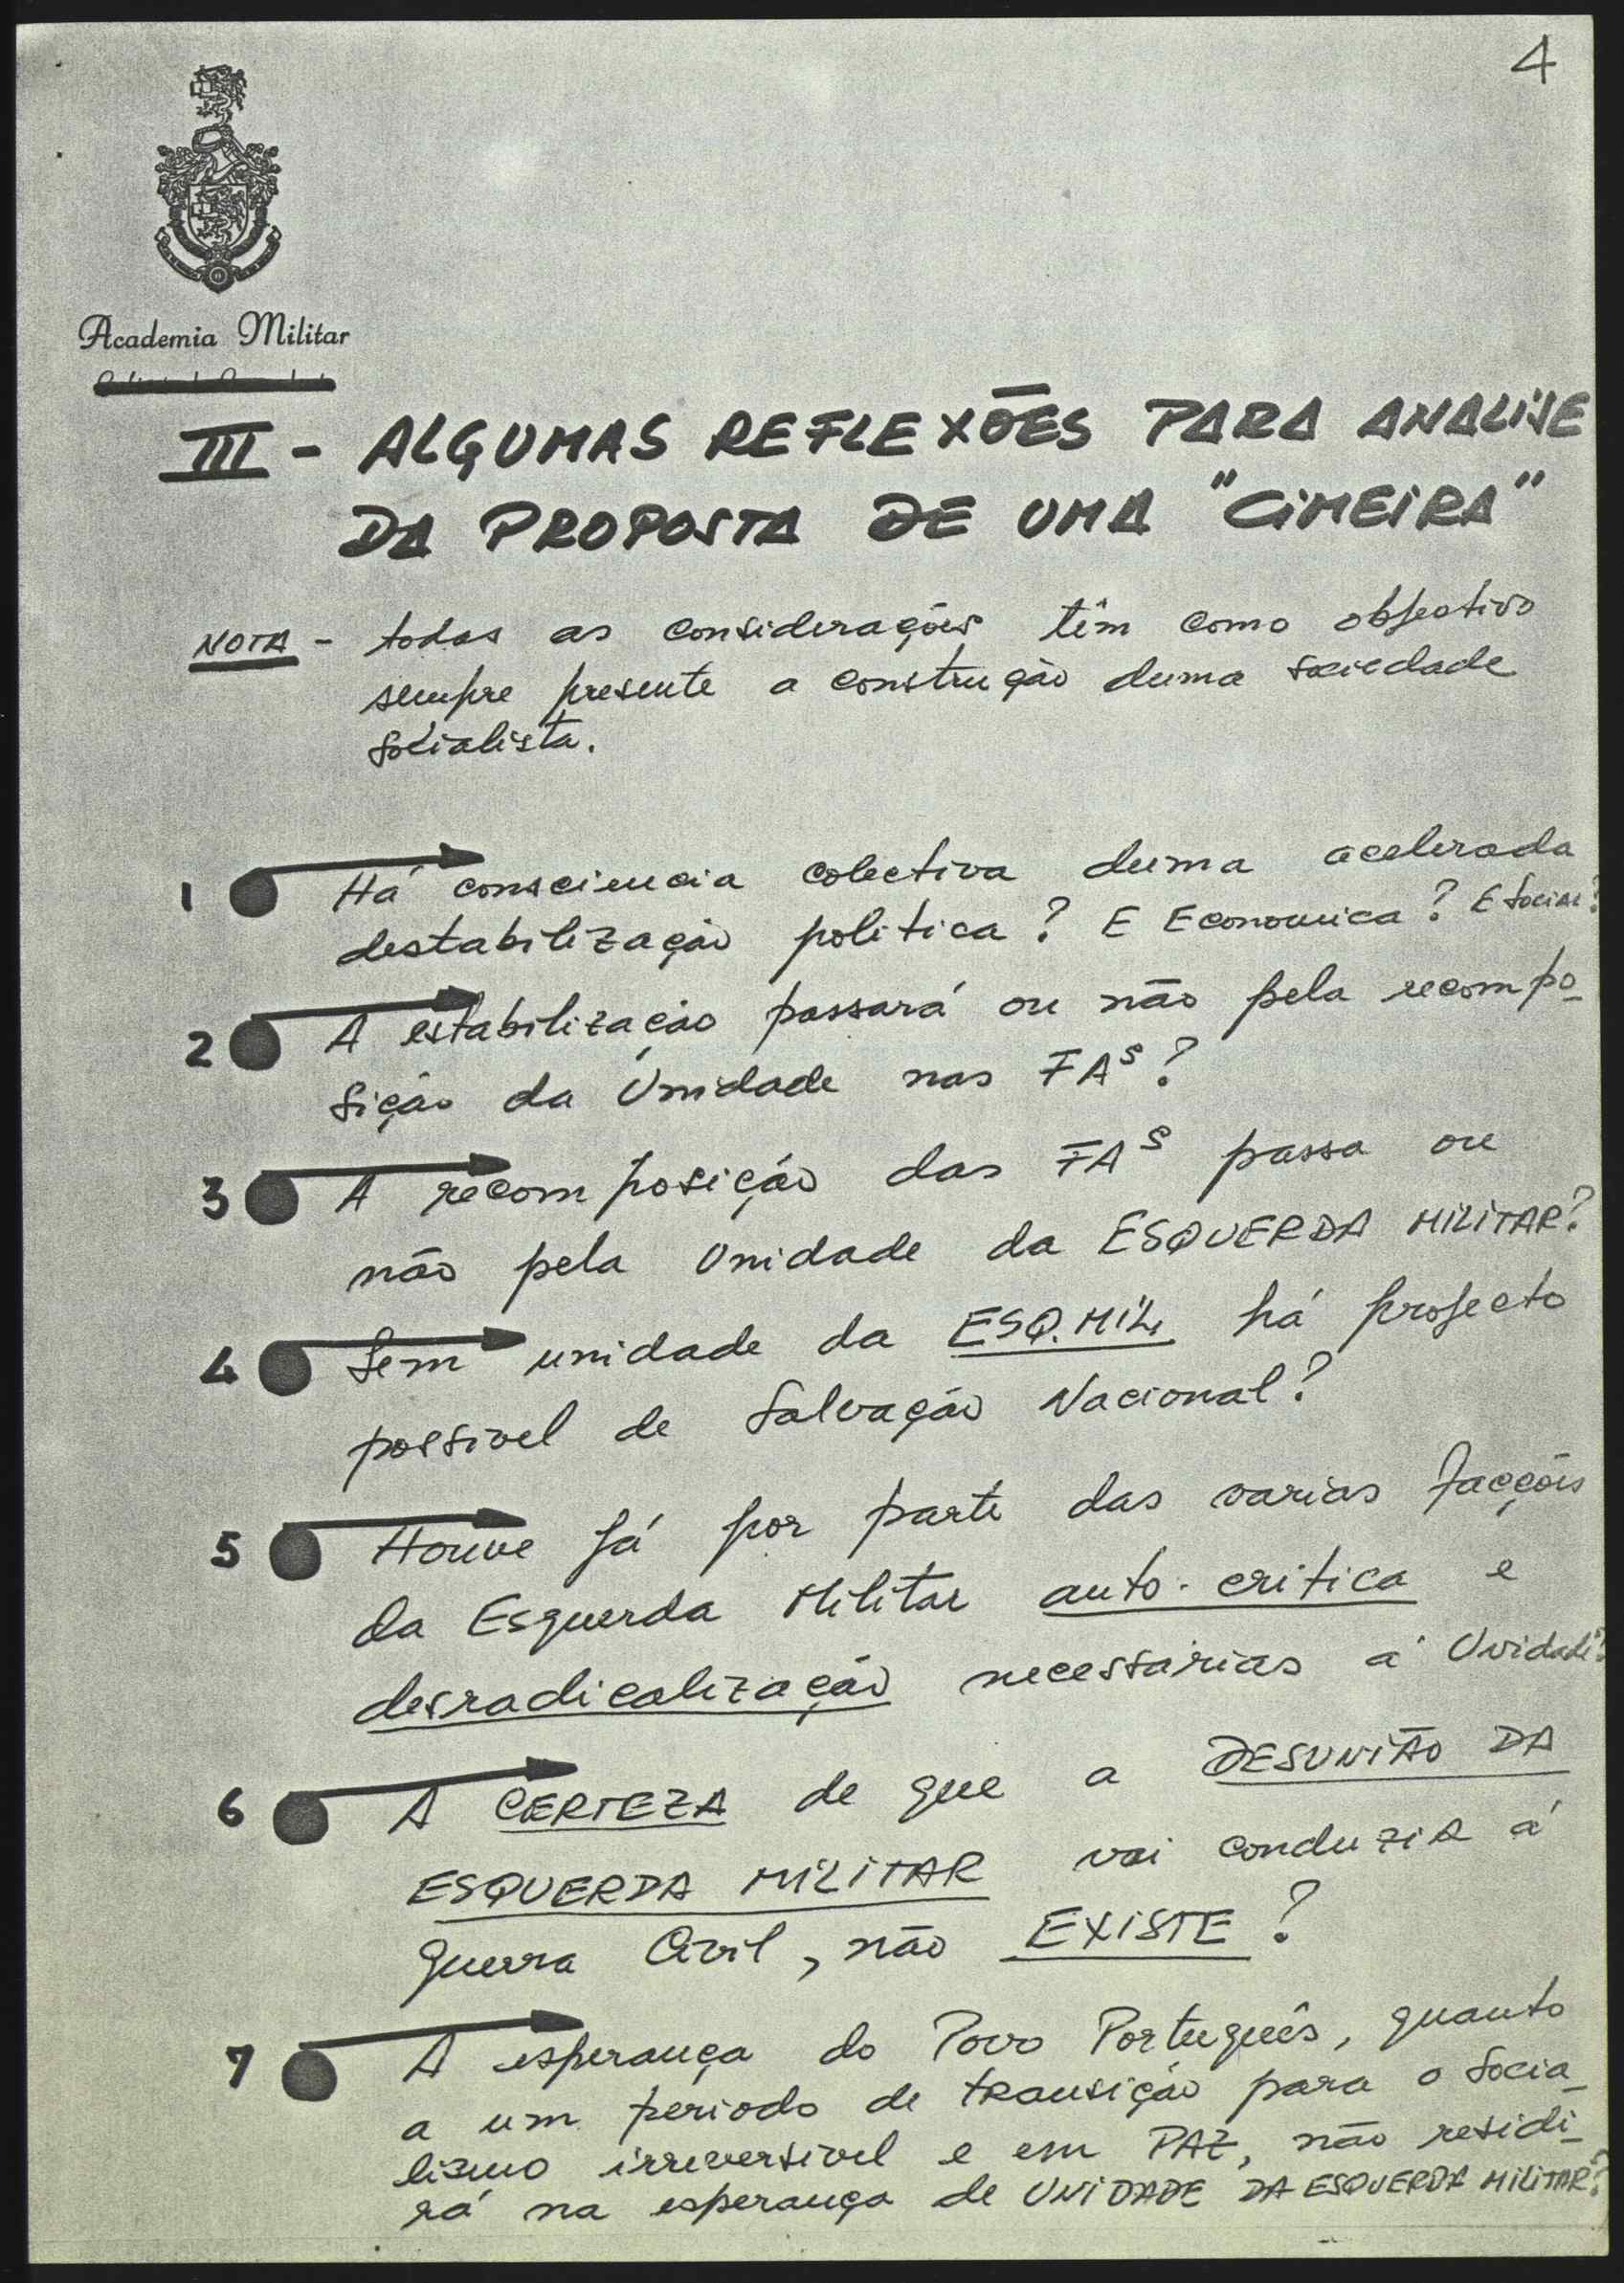 4
Academia Militar
III - ALGUMAS REFLEXÕES PARA ANALISE
DA PROPOSTA DE UMA "CIMEIRA"
NOTA - todas as considerações têm como objectivo
sempre presente a construção duma sociedade
socialista.
1 Há consciencia colectiva duma acelerada
destabilização politica? E Economica? E Social?
2 A estabilização passará ou não pela recompo-
sição da Unidade nas FAs?
3 A recomposição das FAs passa ou
não pela Unidade da ESQUERDA MILITAR?
4 Sem unidade da ESQ. MIL, há projecto
possivel de Salvação Nacional?
5 Houve já por parte das varias facções
da Esquerda Militar auto-critica e
desradicalização necessárias á Unidade?
6 A CERTEZA de que a DESUNIÃO DA
ESQUERDA MILITAR vai conduzir á
guerra Civil, não EXISTE?
7 A esperança do Povo Português, quanto
a um periodo de transição para o Socia-
lismo irreversivel e em PAZ, não residi-
rá na esperança de UNIDADE DA ESQUERDA MILITAR?